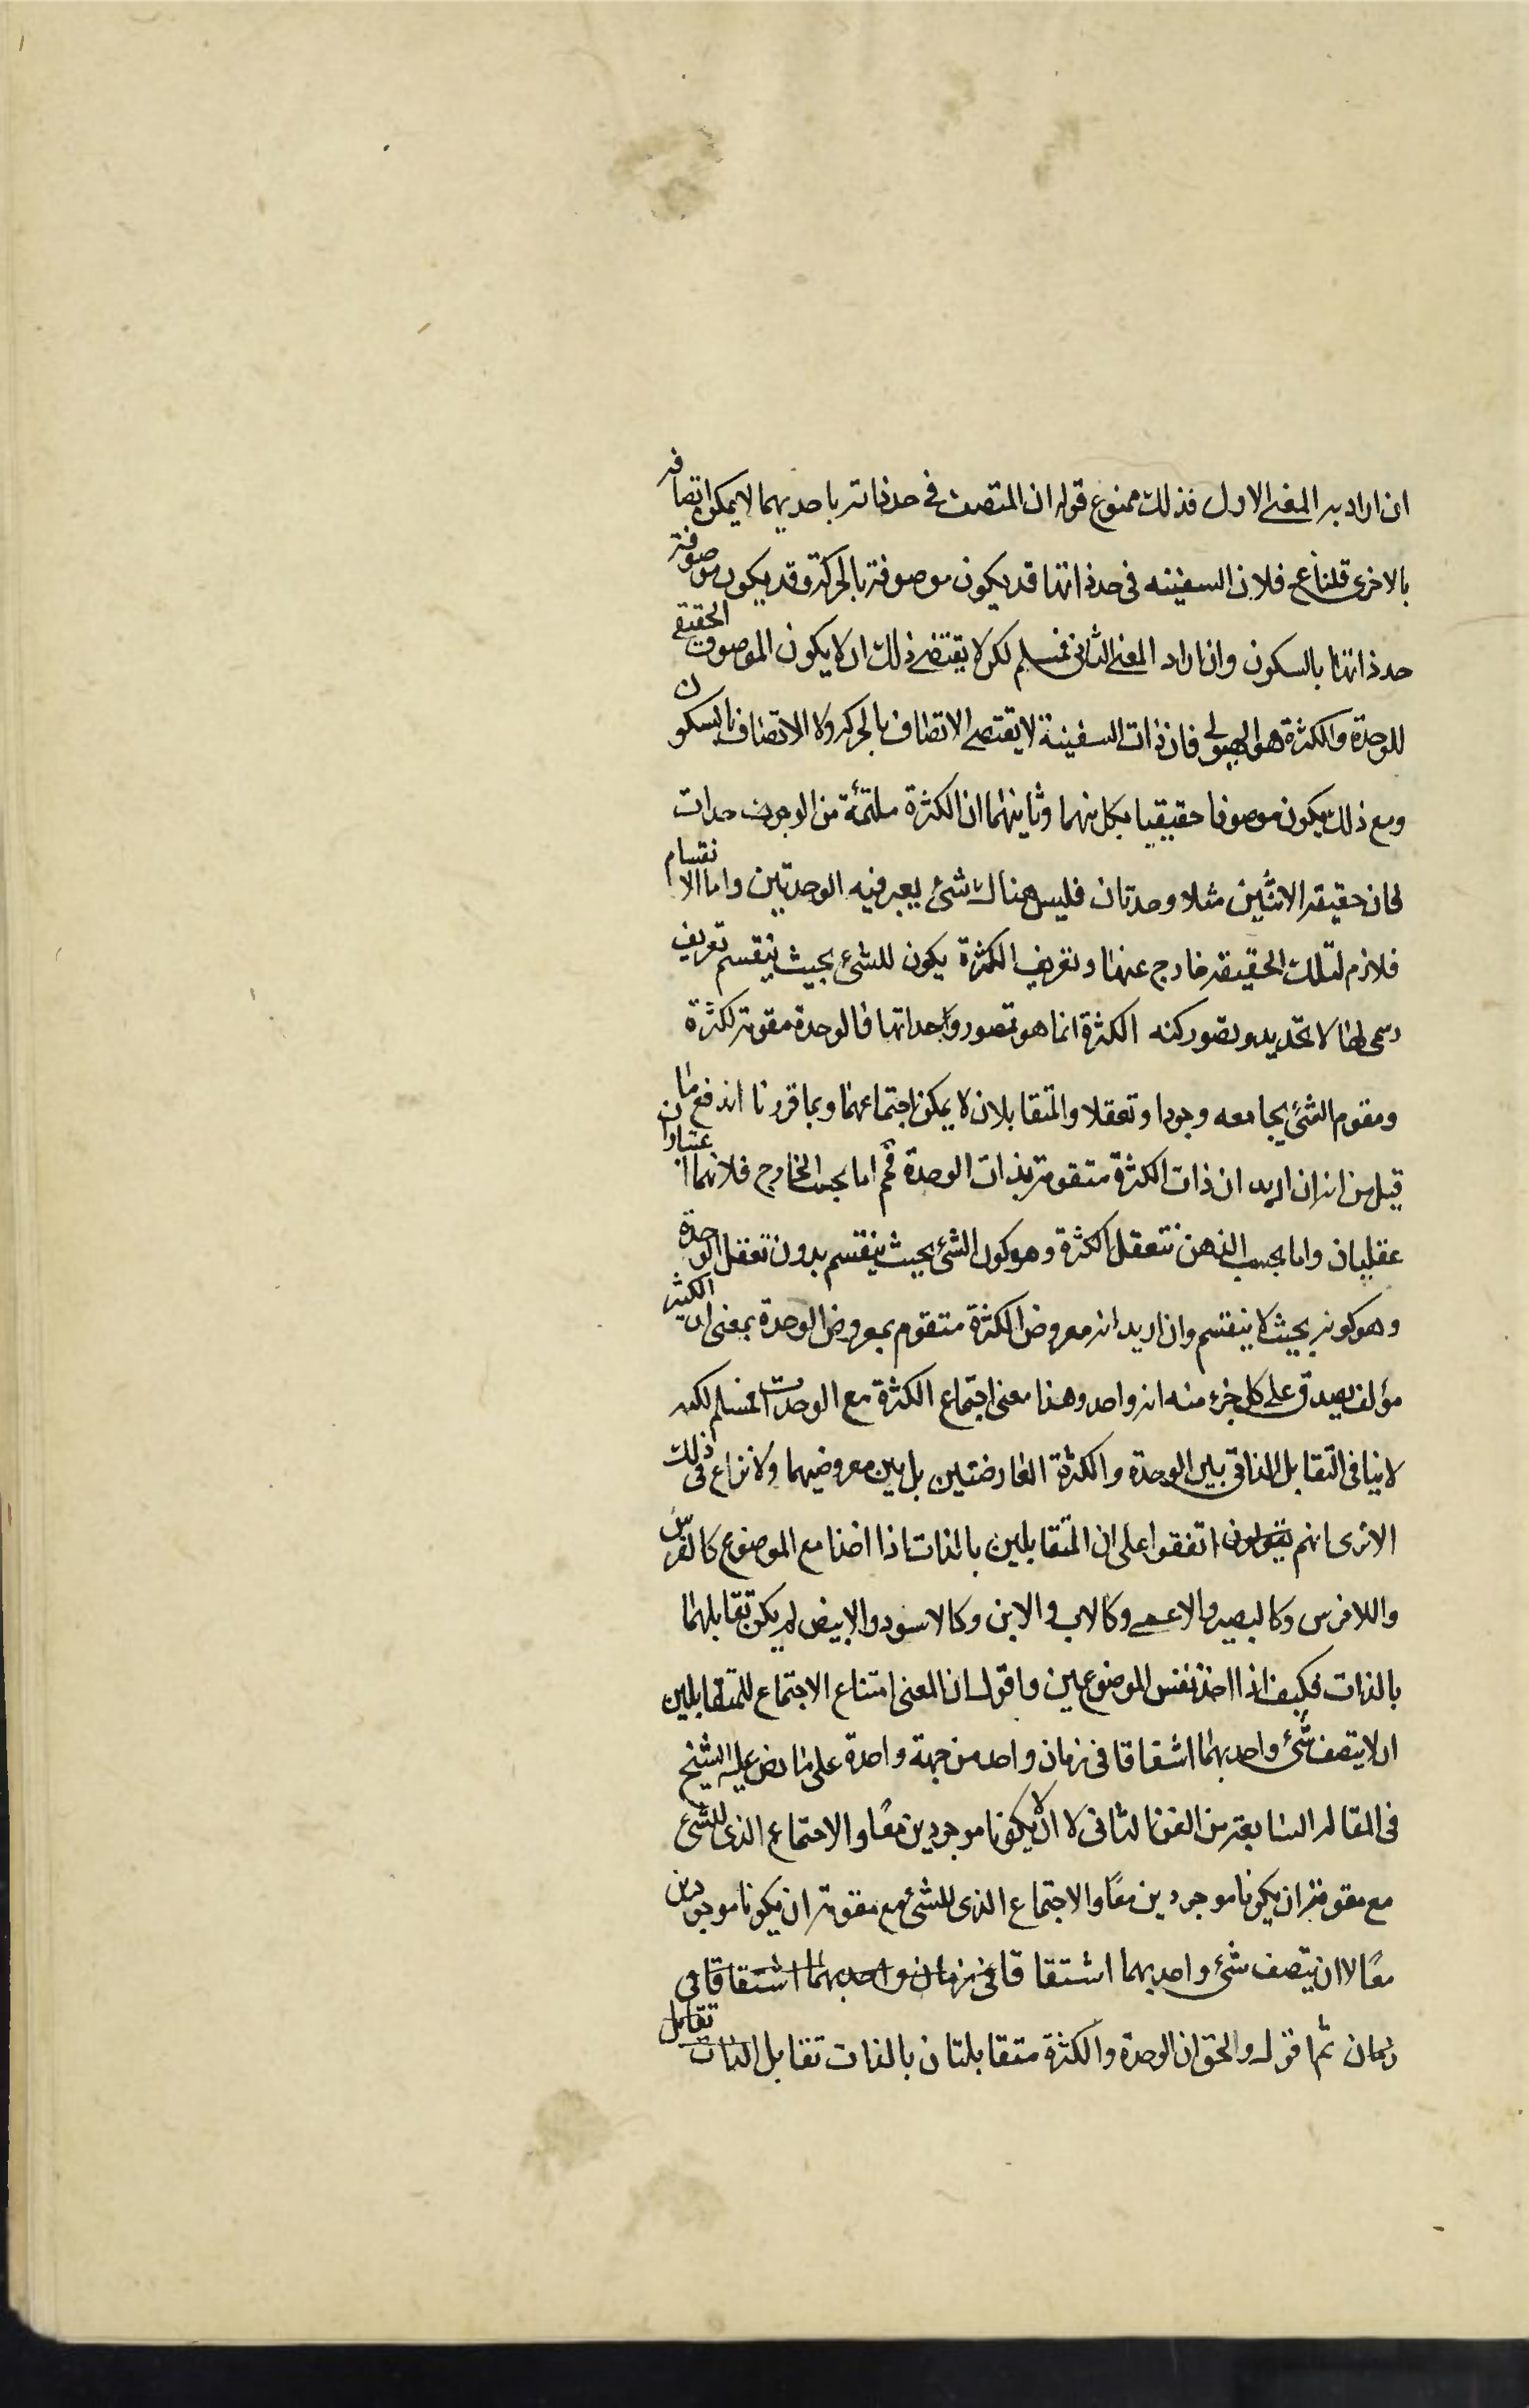 ان اراد به المعنى الاول فذلك ممنوع قوله ان المتصف فى حد ذاته باحديهما لا يمكن اتصافه
بالاخرى قلنا مم فلان السفينه فى حد ذاتها قد يكون موصوفة بالحركة وقد يكون موصوفة
حد ذاتها بالسكون وان اراد المعنى الثانى فمسلم لكن لا يقتضى ذلك ان لا يكون الموصوف الحقيقى
للوحدة والكثرة هو الهيولى فان ذات السفينة لا يقتضى الاتصاف بالحركه ولا الاتصاف بالسكون
ومع ذلك يكون موصوفا حقيقيا بكل منهما وثانيهما ان الكثرة ملتئمة من الوحدات
فان حقيقه الاثنين مثلا وحدتان فليس هناك شئ يعبر فيه الوحدتين واما الانقسام
فلازم لتلك الحقيقه خارج عنها وتعريف الكثرة بكون للشئ بحيث ينقسم تعريف
رسمى لها لا تحديد وتصور كنه الكثرة انما هو تصور واحداتها فالوحدة مقومة لكثرة
ومقوم الشئ يجامعه وجودا وتعقلا والمتقابلان لا يمكن اجتماعهما وبما قررنا اندفع ما
قيل من انه ان اريد ان ذات الكثرة متقومة بذات الوحدة فمم اما بحسب الخارج فلانهما اعتباران
عقليان واما بحسب الذهن فتعقل الكثرة وهو كون الشئ بحيث ينقسم بدون تعقل الوحدة
وهو كونه بحيث لا ينقسم وان اريد انه معروض الكثرة متقوم بمعروض الوحدة بمعنى ان الكثير
مؤلف يصدق على كل جزء منه انه واحد وهذا معنى اجتماع الكثرة مع الوحدت فمسلم لكنه
لا ينافى التقابل الذاتى بين الوحدة والكثرة العارضتين بل بين معروضيهما ولا نزاع فى ذلك
الا ترى انهم يقولون اتفقوا على ان المتقابلين بالذات اذا اخذا مع الموضوع كالفرس
واللافرس وكالبصير والاعمى وكالاب والابن وكالاسود والابيض لم يكن تقابلهما
بالذات فكيف اذا اخذ نفس الموضوعين واقول ان المعنى امتناع الاجتماع للمتقابلين
ان لا يتصف شئ واحد بهما اشتقاقا فى زمان واحد من جهة واحدة على ما نص عليه الشيخ
فى المقاله السابعة من الفن الثانى لا ان لا يكونا موجودين معًا والاجتماع الذى للشئ
مع مقومه ان يكونا موجودين معًا والاجتماع الذى للشئ مع مقومه ان يكونا موجودين
معًا لا ان يتصف شئ واحد بهما اشتقاقا فى زمان واحد بهما اشتقاقا فى
زمان ثم اقول والحق ان الوحدة والكثرة متقابلتان بالذات تقابل الذات تقابل